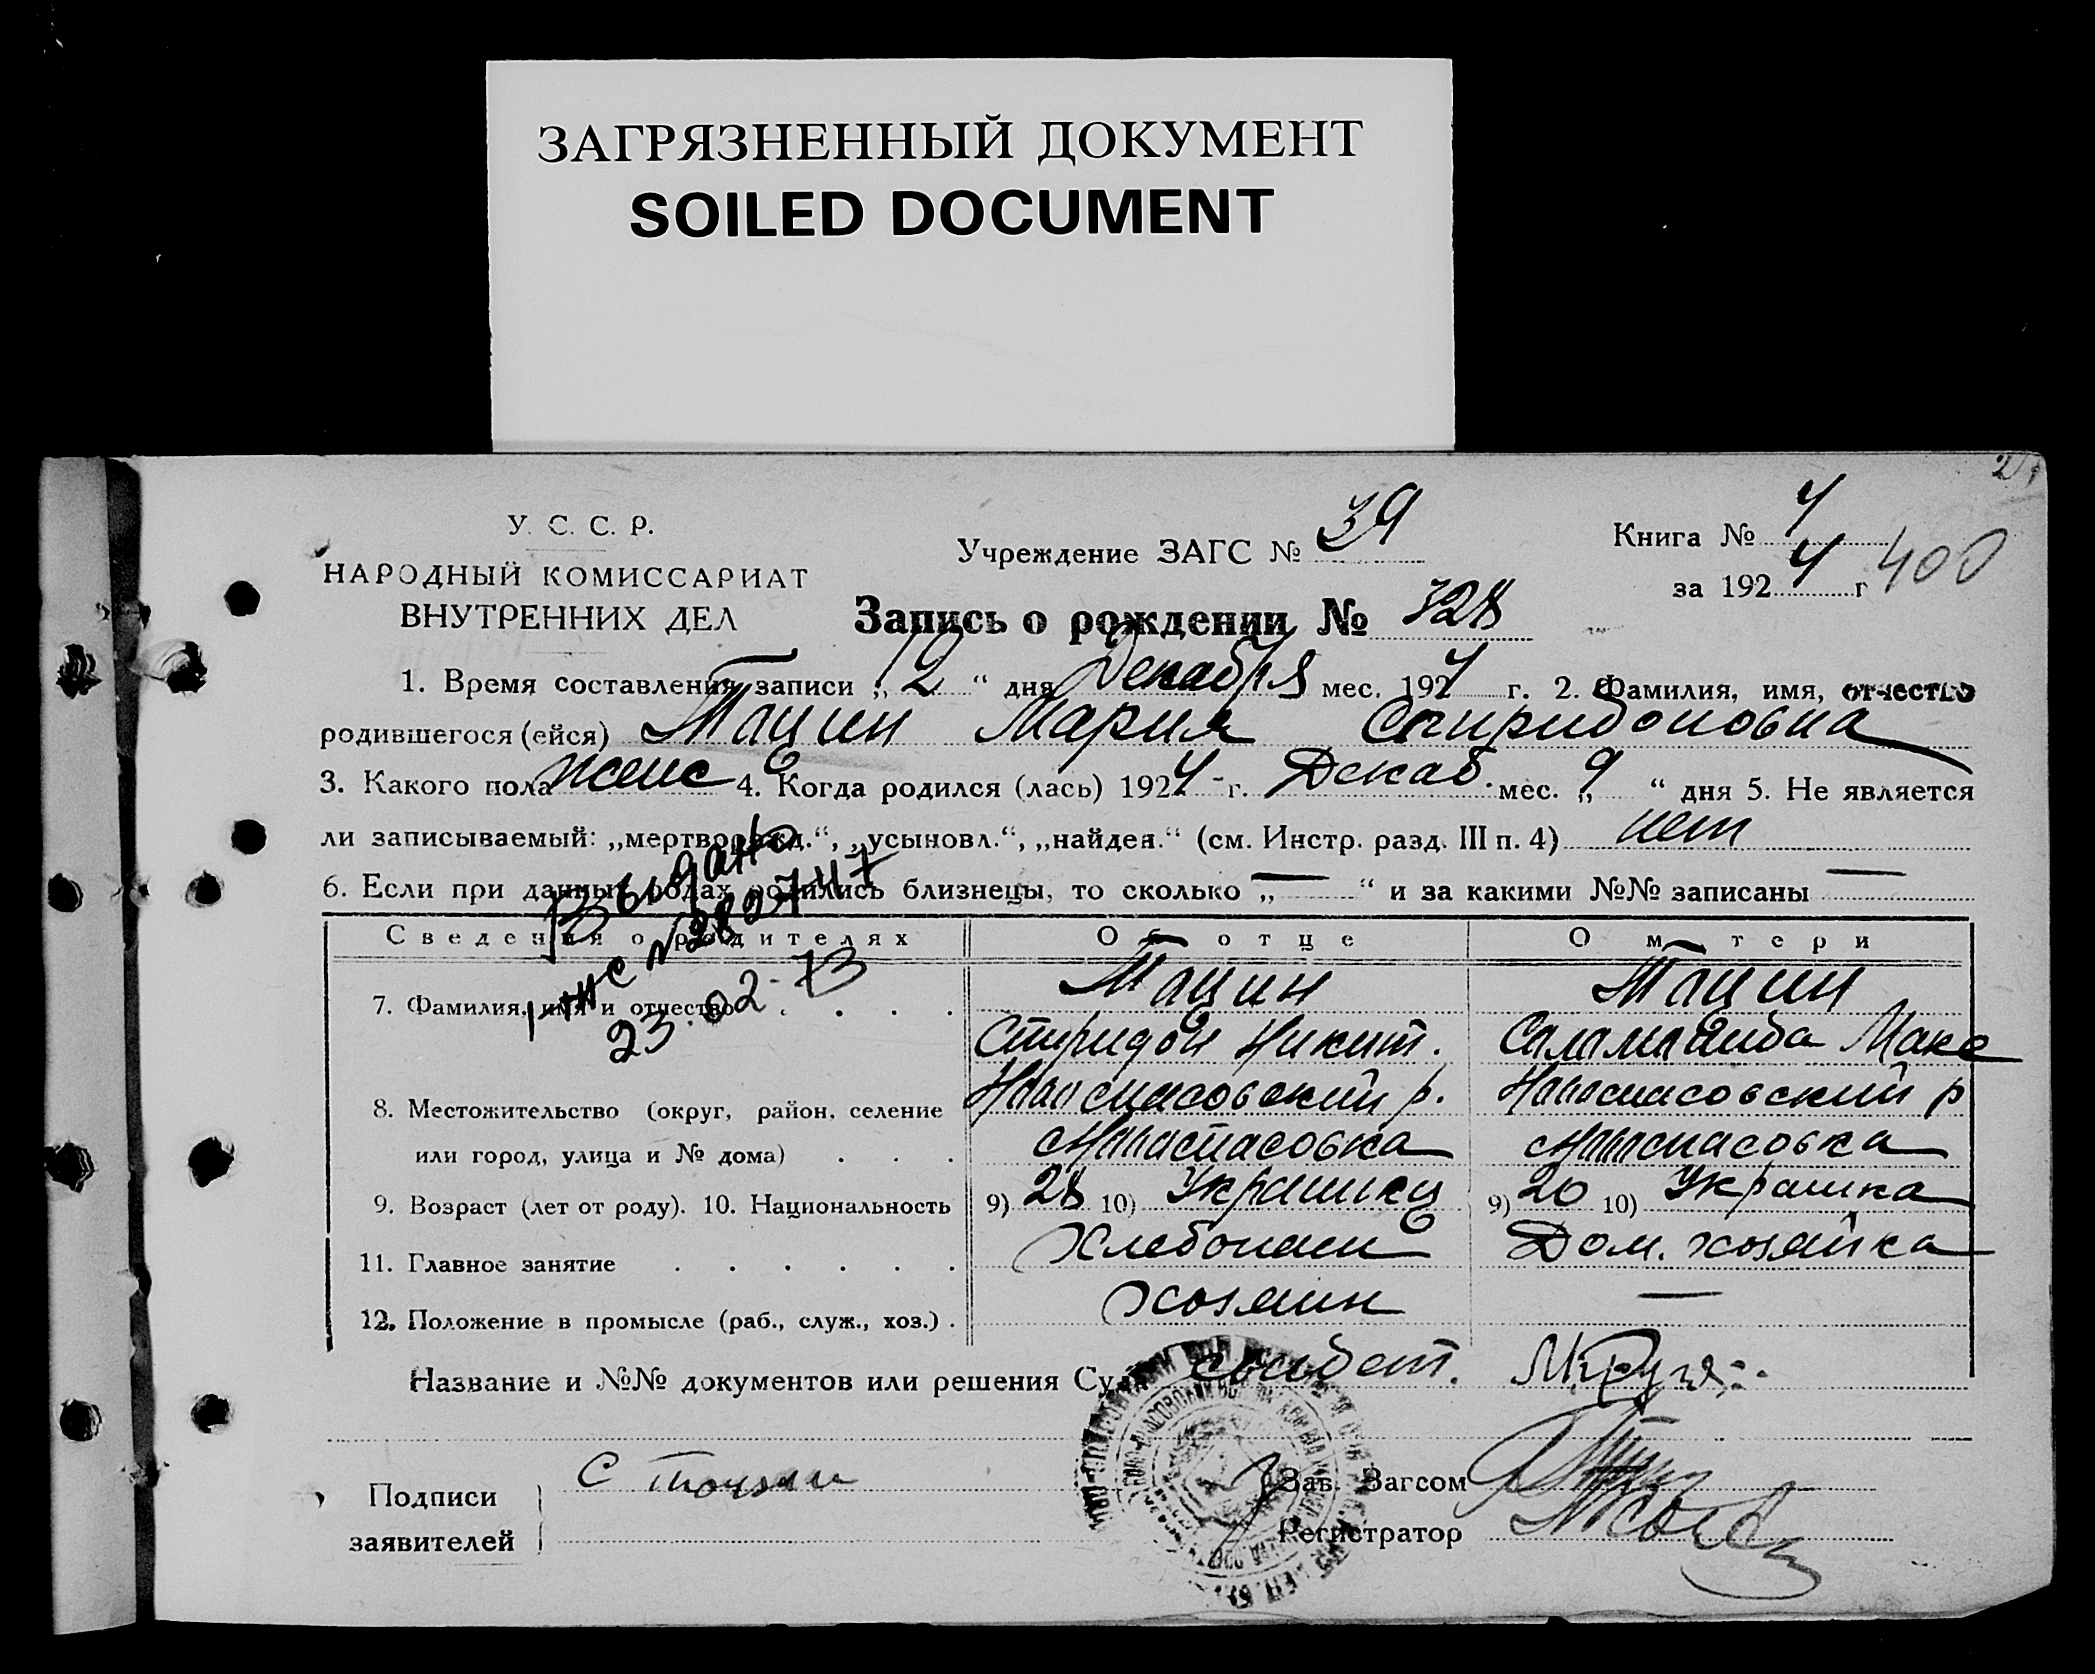 ЗАГРЯЗНЕННЫЙ ДОКУМЕНТ
SOILED DOCUMENT
У. С. С. Р.
НАРОДНЫЙ КОМИССАРИАТ
ВНУТРЕННИХ ДЕЛ
Учреждение ЗАГС № 39
Книга № 4
за 1924 г 400
Запись о рождении № 328
1. Время составления записи „12“ дня Декабря мес. 1924 г. 2. Фамилия, имя, отчество
родившегося (ейся) Тацин Мария Спиридоновна
3. Какого пола женс 4. Когда родился (лась) 1924 г. Декаб. мес. „9“ дня 5. Не является
ли записываемый: „мертворожд.“, „усыновл.“, „найден.“ (см. Инстр. разд. III п. 4) нет
6. Если при данных родах родились близнецы, то сколько „—“ и за какими №№ записаны —
Выдано
1-ЖС №282747
23.02-73
Сведения о родителях Об отце О матери
7. Фамилия, имя и отчество Тацин Тацин
Спиридон Никит. Саламанида Макс
8. Местожительство (округ, район, селение Новоспасовский р. Новоспасовский р
или город, улица и № дома) с Новоспасовка с Новоспасовка
9. Возраст (лет от роду). 10. Национальность 9) 28 10) Украинец 9) 20 10) Украинка
11. Главное занятие Хлебопаш Дом. хозяйка
12. Положение в промысле (раб., служ., хоз.) Хозяин —
Название и №№ документов или решения Суда
Подписи
заявителей
С
Зав. Загсом
Регистратор